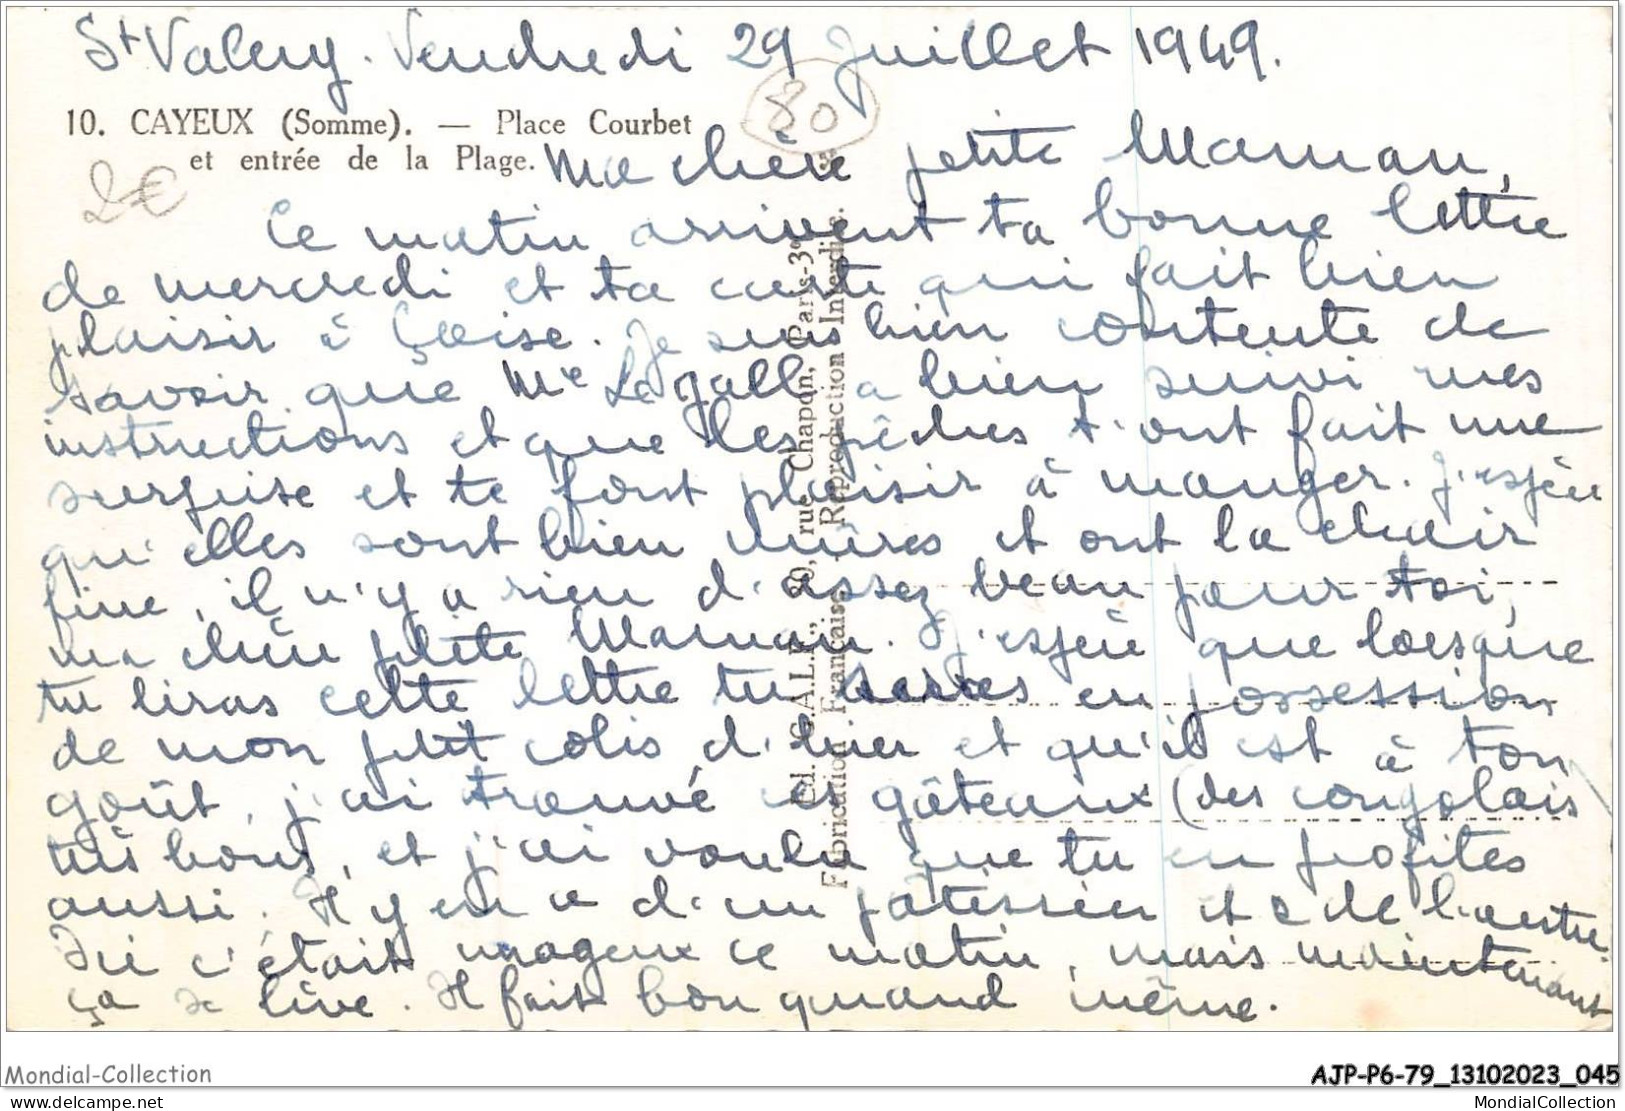 St Valery. Vendredi 29 Juillet 1949.
10. CAYEUX (Somme). — Place Courbet
et entrée de la Plage.
80
2€
Ma chère petite Maman,
Ce matin arrivent ta bonne lettre
de mercredi et ta carte qui fait bien
plaisir à . Je suis bien contente de
savoir que Me Le gall a bien suivi mes
instructions et que les pêches t'ont fait une
surprise et te font plaisir à manger. J'espère
qu'elles sont bien mûres et ont la chair
fine, il n'y a rien d'assez beau pour toi,
ma chère petite Maman. J'espère que lorsque
tu liras cette lettre tu seras en possession
de mon petit colis d'hier et qu'il est à ton
goût, j'ai trouvé ces gâteaux (des congolais
très bons, et j'ai voulu que tu en profites
aussi. Il y en a d'un pâtissier et 2 de l'autre.
Ici c'était nuageux ce matin, mais maintenant
ça se lève. Il fait bon quand même.
Ed. G.A.L.F., 20, rue Chapon, Paris-3e
Fabrication Française - Reproduction Interdite.
Mondial-Collection
AJP-P6-79_13102023_045
delcampe.net
MondialCollection